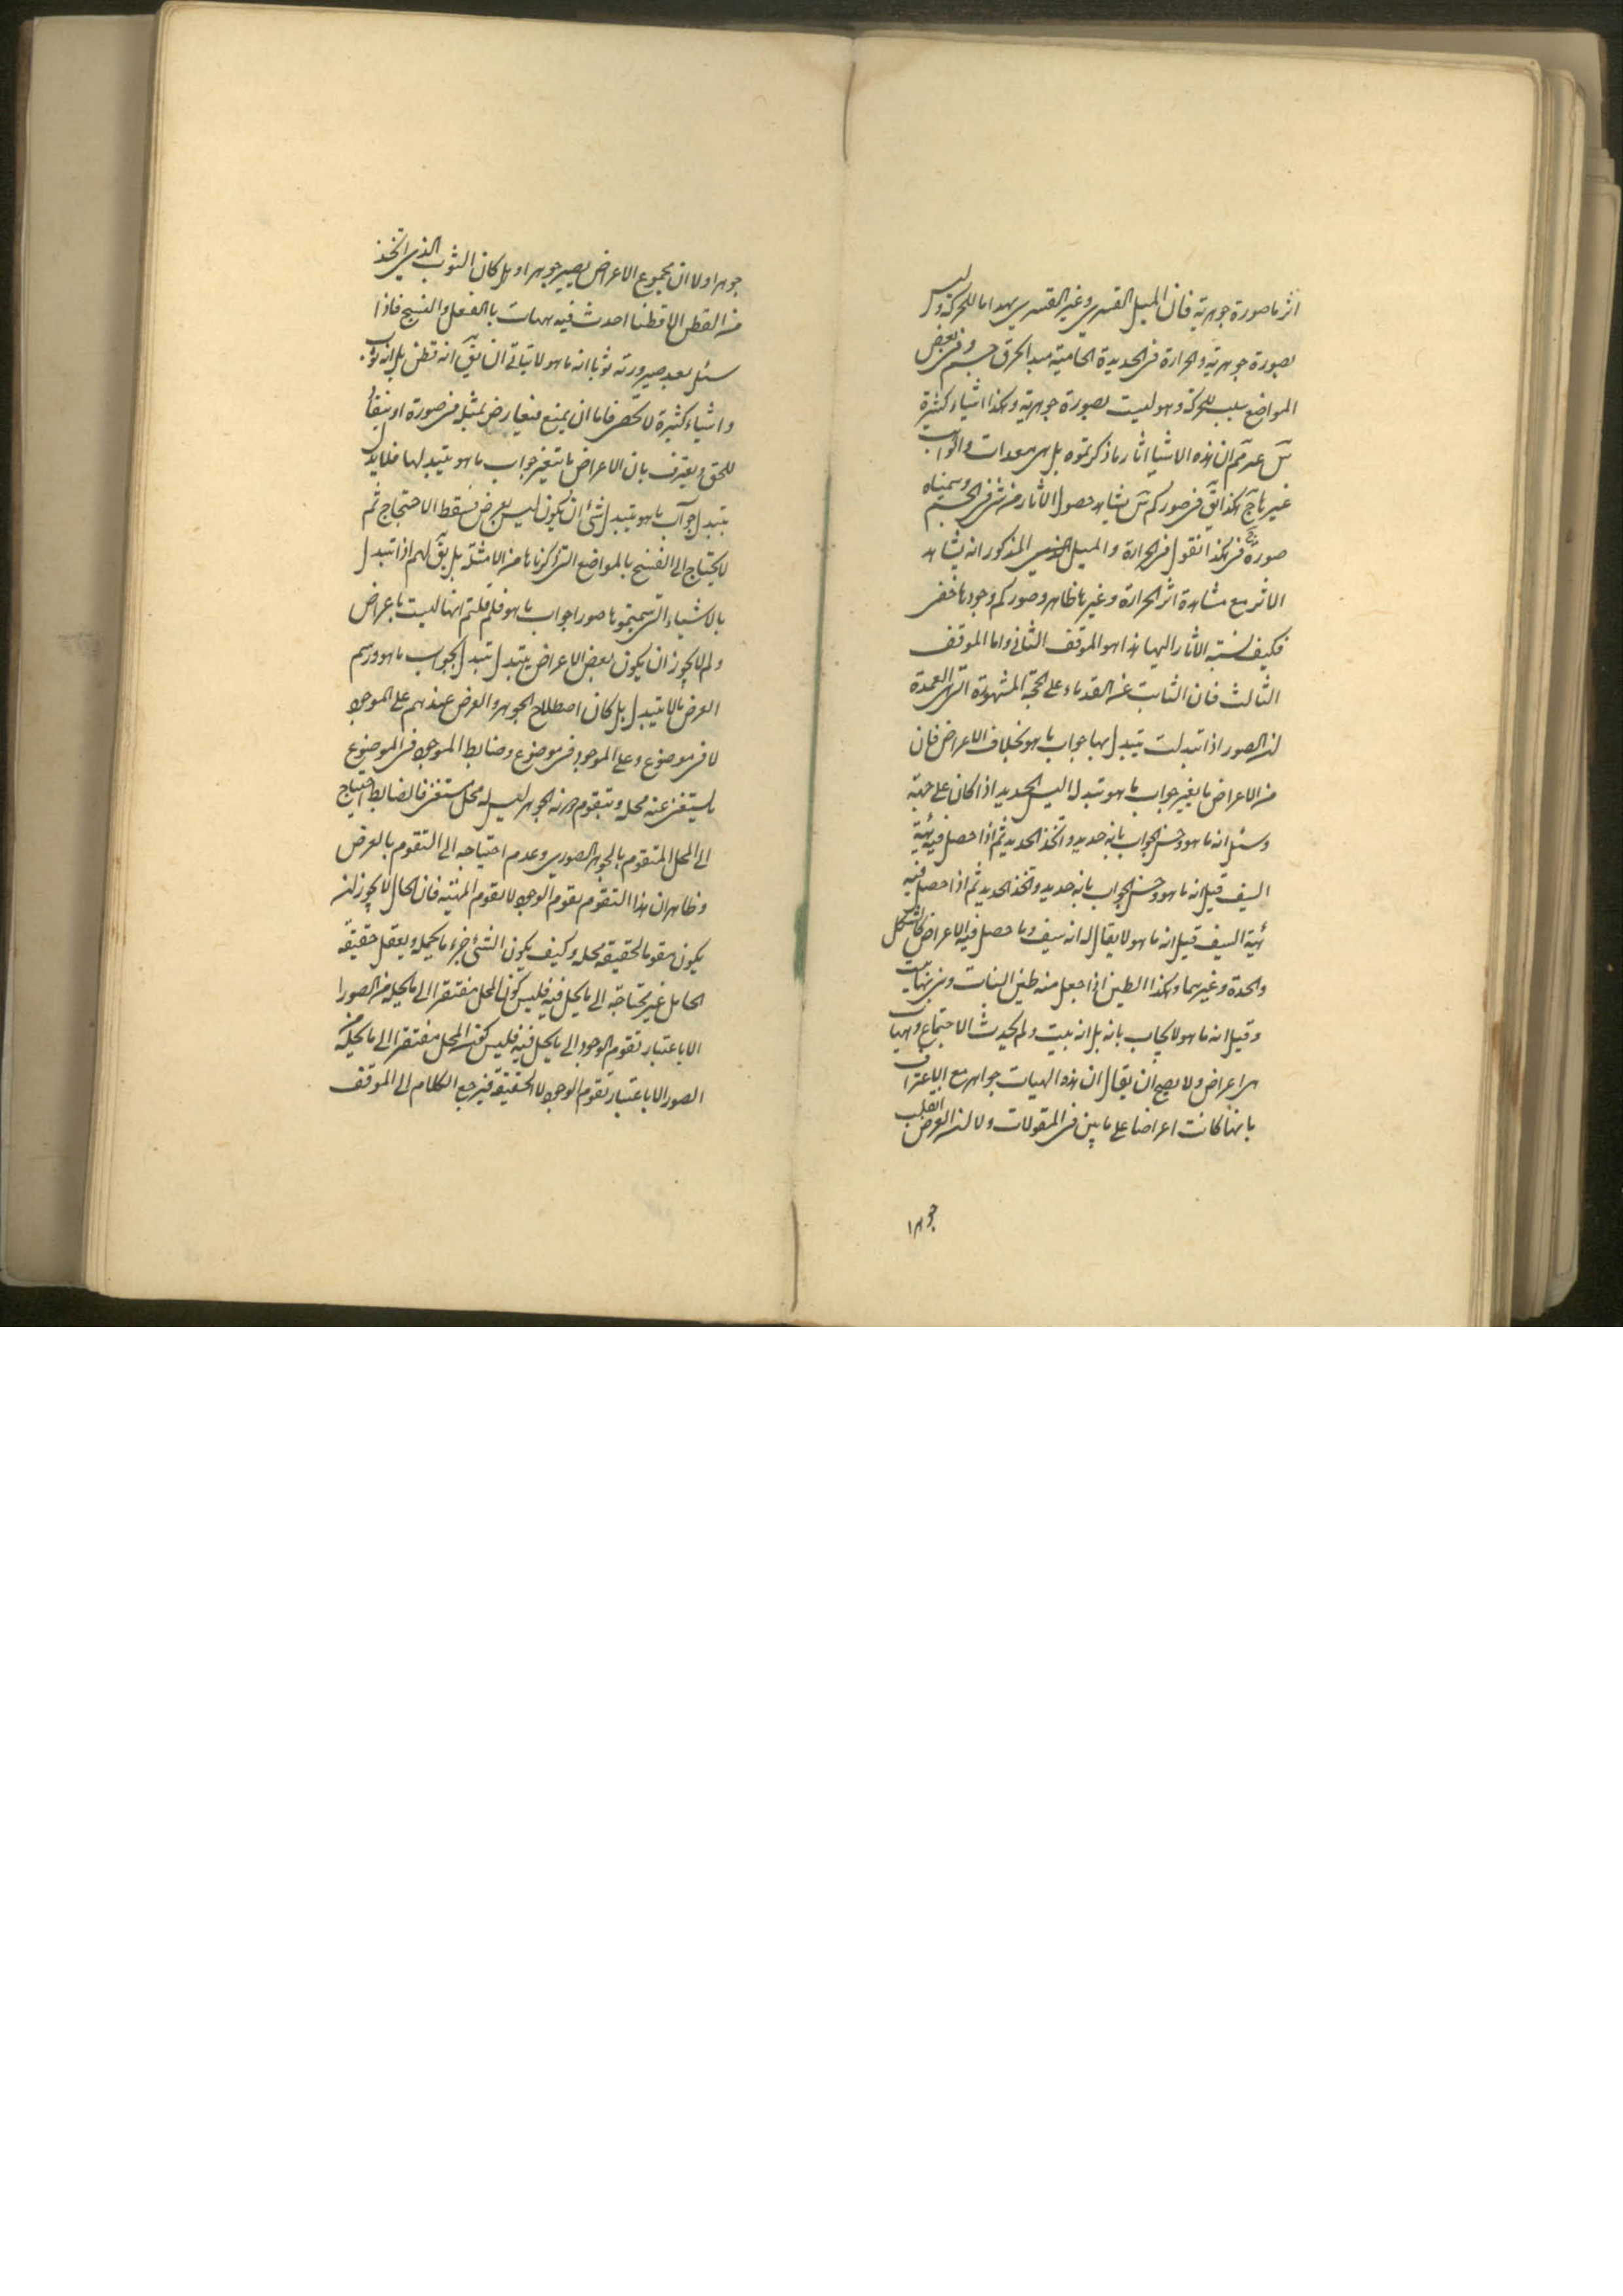 اثرها صورة جوهرية فان الميل القسري وغير القسري مبدا ما للحركة وليس
بصورة جوهرية والحرارة فى الحديدة الحامية مبدا لحرق جسم وفى بعض
المواضع سبب للحركة وهو ليست بصورة جوهرية وهكذا اشياء كثيرة
ان هذه الاشيا اثار ما ذكرتموه بل هى معدات والواهب
غيرها هكذا فى صوركم يشاهد حصول الاثار من شئ فى الجسم وسميناه
صورة هكذا نقول فى الحرارة والميل المذكور انه يشاهد
الاثر مع مشاهدة اثر الحرارة وغيرها ظاهر وصوركم وجودها خفى
فكيف نسبة الاثار اليها هذا هو الموقف الثانى واما الموقف
الثالث فان الثابت عن القدماء على الحجة المشهورة التى هى العمدة
ان الصور اذا تبدلت يتبدل بها جواب ما هو بخلاف الاعراض فان
من الاعراض ما بغير جواب ما هو تبدل اليس الحديد اذا كان على هيئة
وسئل انه ما هو وحسن الجواب بانه حديد واتخذ الحديد ثم اذا حصل فيه هيئة
السيف قيل انه ما هو وحسن الجواب بانه حديد واتخذ الحديد ثم اذا حصل فيه
هيئة السيف قيل انه ما هو لا يقال له انه سيف وما حصل فيه الا عراض كالشكل
والحدة وغيرهما وهكذا الطين اذا جعل منه طين البنات وبنى بيت
وقيل انه ما هو لا يجاب بانه بل انه بيت ولم يحدث الا اجتماع وهيات
هى اعراض ولا يصح ان يقال ان هذه الهيات جواهر مع الاعتراف
بانها كانت اعراضا على ما بين فى المقولات ولا ان العرض انقلب
جوهرا
جوهرا ولا ان مجموع الاعراض يصير جوهرا وبل كان الثوب الذى اتخذ
من القطن الا قطنا احدث فيه هيات بالفعل والنسج فاذا
سئل بعد صيرورته ثوبا انه ما هو لا يتاتى ان يق انه قطن بل انه ثوب
واشياء كثيرة لا تحصى فاما ان يمنع فيعارض بمثله فى صورة او ينقاد
للحق ويعترف بان الاعراض ما يتغير جواب ما هو بتبدلها فلا يدل
بتبدل جواب ما هو بتبدل شئ ان يكون ليس بعرض فسقط الاحتجاج ثم
لا يحتاج الى الفسخ بالمواضع التى ذكرناها من الامثلة بل يق لهم اذا تبدل
بالاشياء التى سميتموها صورا جواب ما هو فلم قلتم انها ليست باعراض
ولم لا يجوز ان يكون بعض الاعراض يتبدل بتبدل الجواب ما هو ورسم
العرض ما لا يتبدل بل كان اصطلاح الجوهر والعرض عندهم على الموجود
لا فى موضوع وعلى الموجود فى موضوع وضابط الموجود فى الموضوع
ما يستغنى عنه محله ويتقوم دونه الجوهر ليس له محل مستغن فالضابط احتياج
الى المحل المتقوم بالجوهر الصورى وعدم احتياجه الى التقوم بالعرض
وظاهر ان هذا التقوم تقوم الوجود لا تقوم المهية فان الحال لا يجوز ان
يكون مقوما لحقيقة محله وكيف يكون الشئ جزء ما يحله ويعقل حقيقة
الحامل غير محتاجة الى ما يحل فيه فليس كون المحل مفتقرا الى ما يحله من الصورا
الا باعتبار تقوم الوجود الى ما يحل فيه فليس كون المحل مفتقرا الى ما يحله من
الصور الا باعتبار تقوم الوجود لا الحقيقة فيرجع الكلام الى الموقف